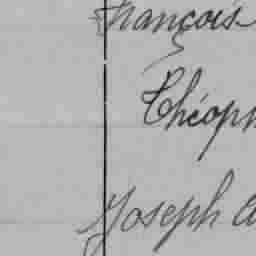 François
Théoph
Joseph A